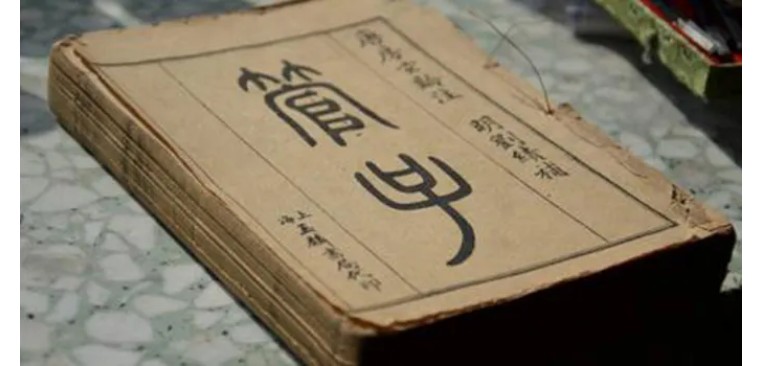 唐房玄齡注
明劉績補
管子
上海